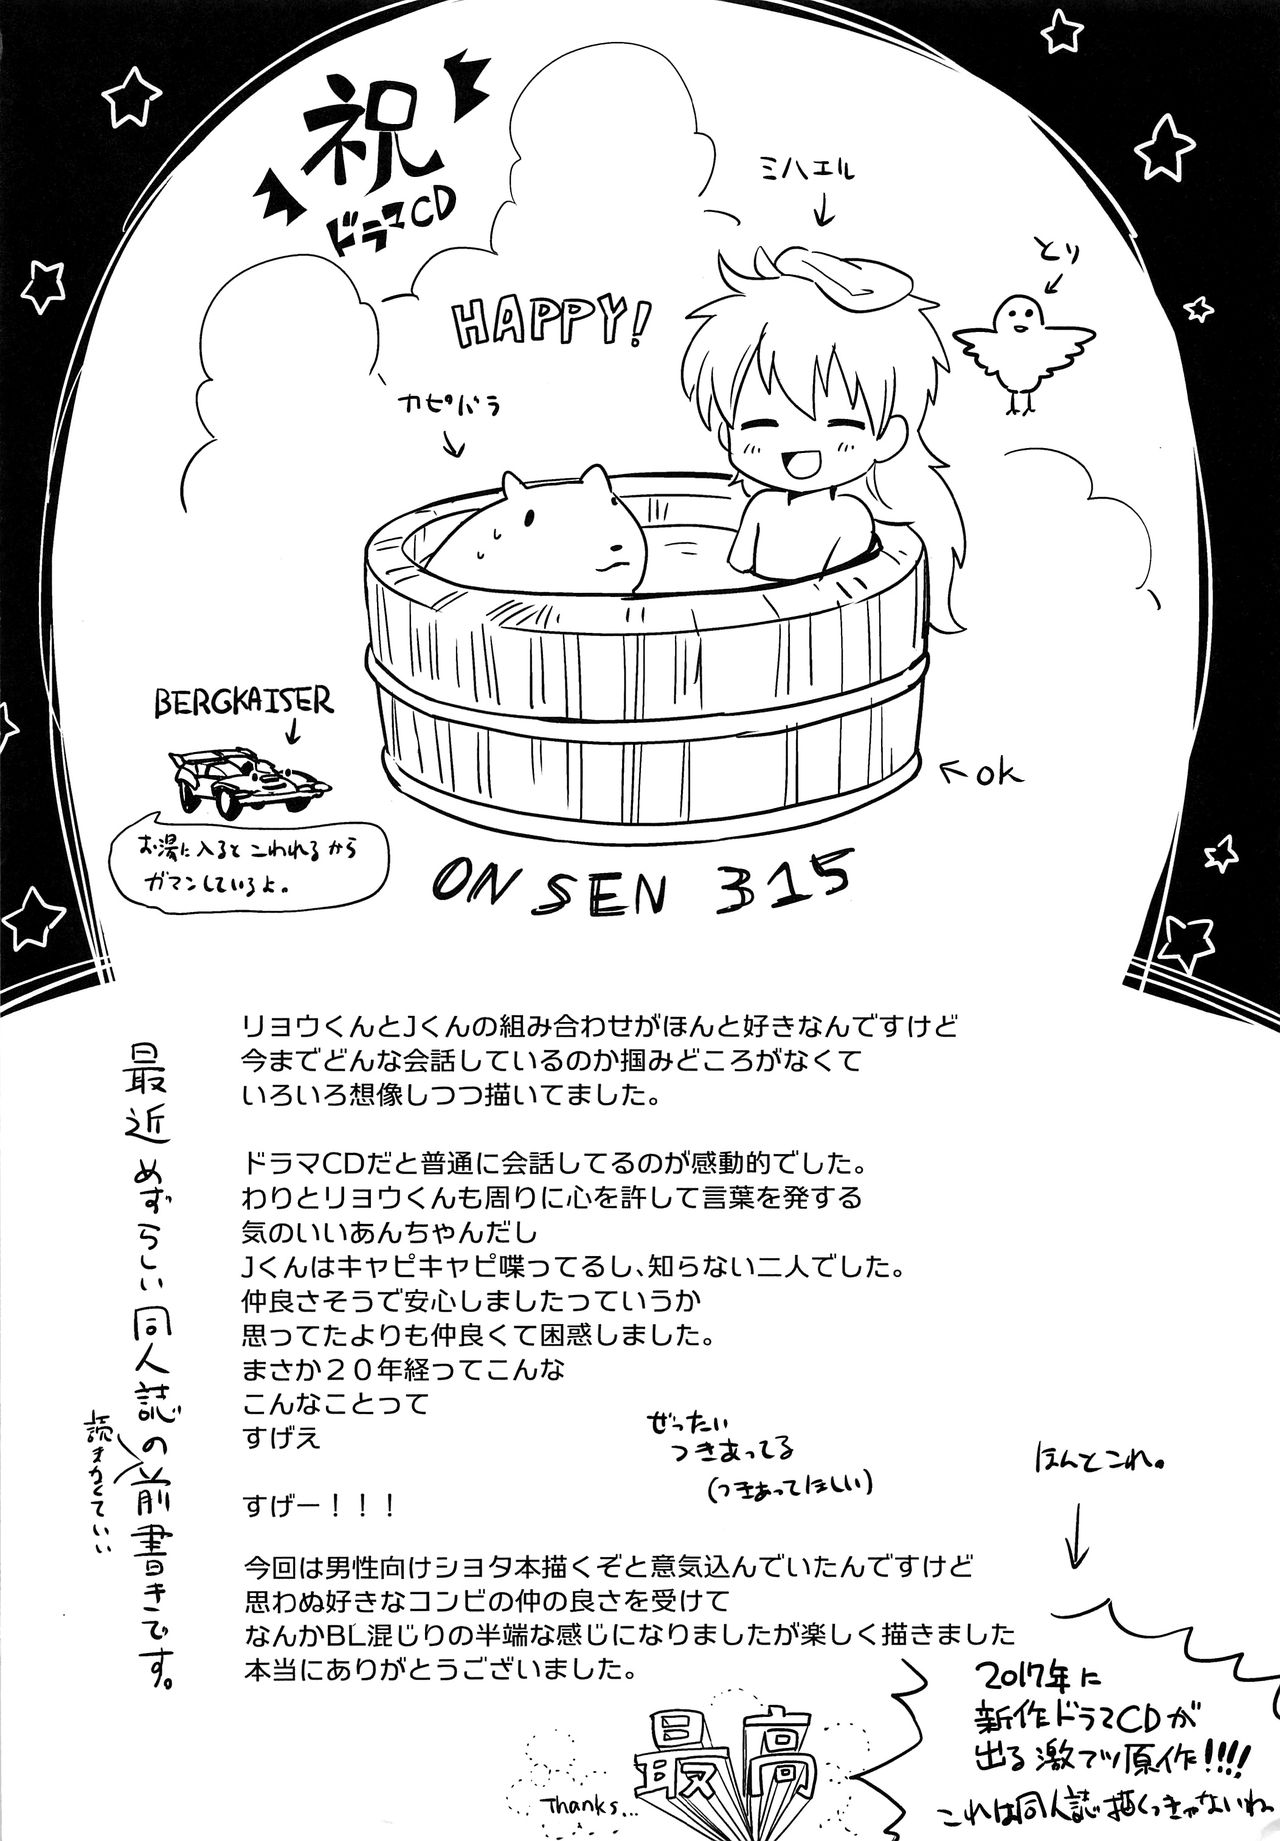 祝
ドラマCD
HAPPY!
ミハエル
とり
カピバラ
BERGKAISER
お湯に入るとこわれるから
ガマンしているよ。
←ok
ONSEN 315
最近めずらしい同人誌の前書きです。
読まなくていい
リョウくんとJくんの組み合わせがほんと好きなんですけど
今までどんな会話しているのか掴みどころがなくて
いろいろ想像しつつ描いてました。
ドラマCDだと普通に会話してるのが感動的でした。
わりとリョウくんも周りに心を許して言葉を発する
気のいいあんちゃんだし
Jくんはキャピキャピ喋ってるし、知らない二人でした。
仲良さそうで安心しましたっていうか
思ってたよりも仲良くて困惑しました。
まさか２０年経ってこんな
こんなことって
すげえ
すげー！！！
ぜったい
つきあってる
(つきあってほしい)
ほんとこれ。
今回は男性向けショタ本描くぞと意気込んでいたんですけど
思わぬ好きなコンビの仲の良さを受けて
なんかBL混じりの半端な感じになりましたが楽しく描きました
本当にありがとうございました。
最高
Thanks...
2017年に
新作ドラマCDが
出る激アツ原作!!!!
これは同人誌描くっきゃないね